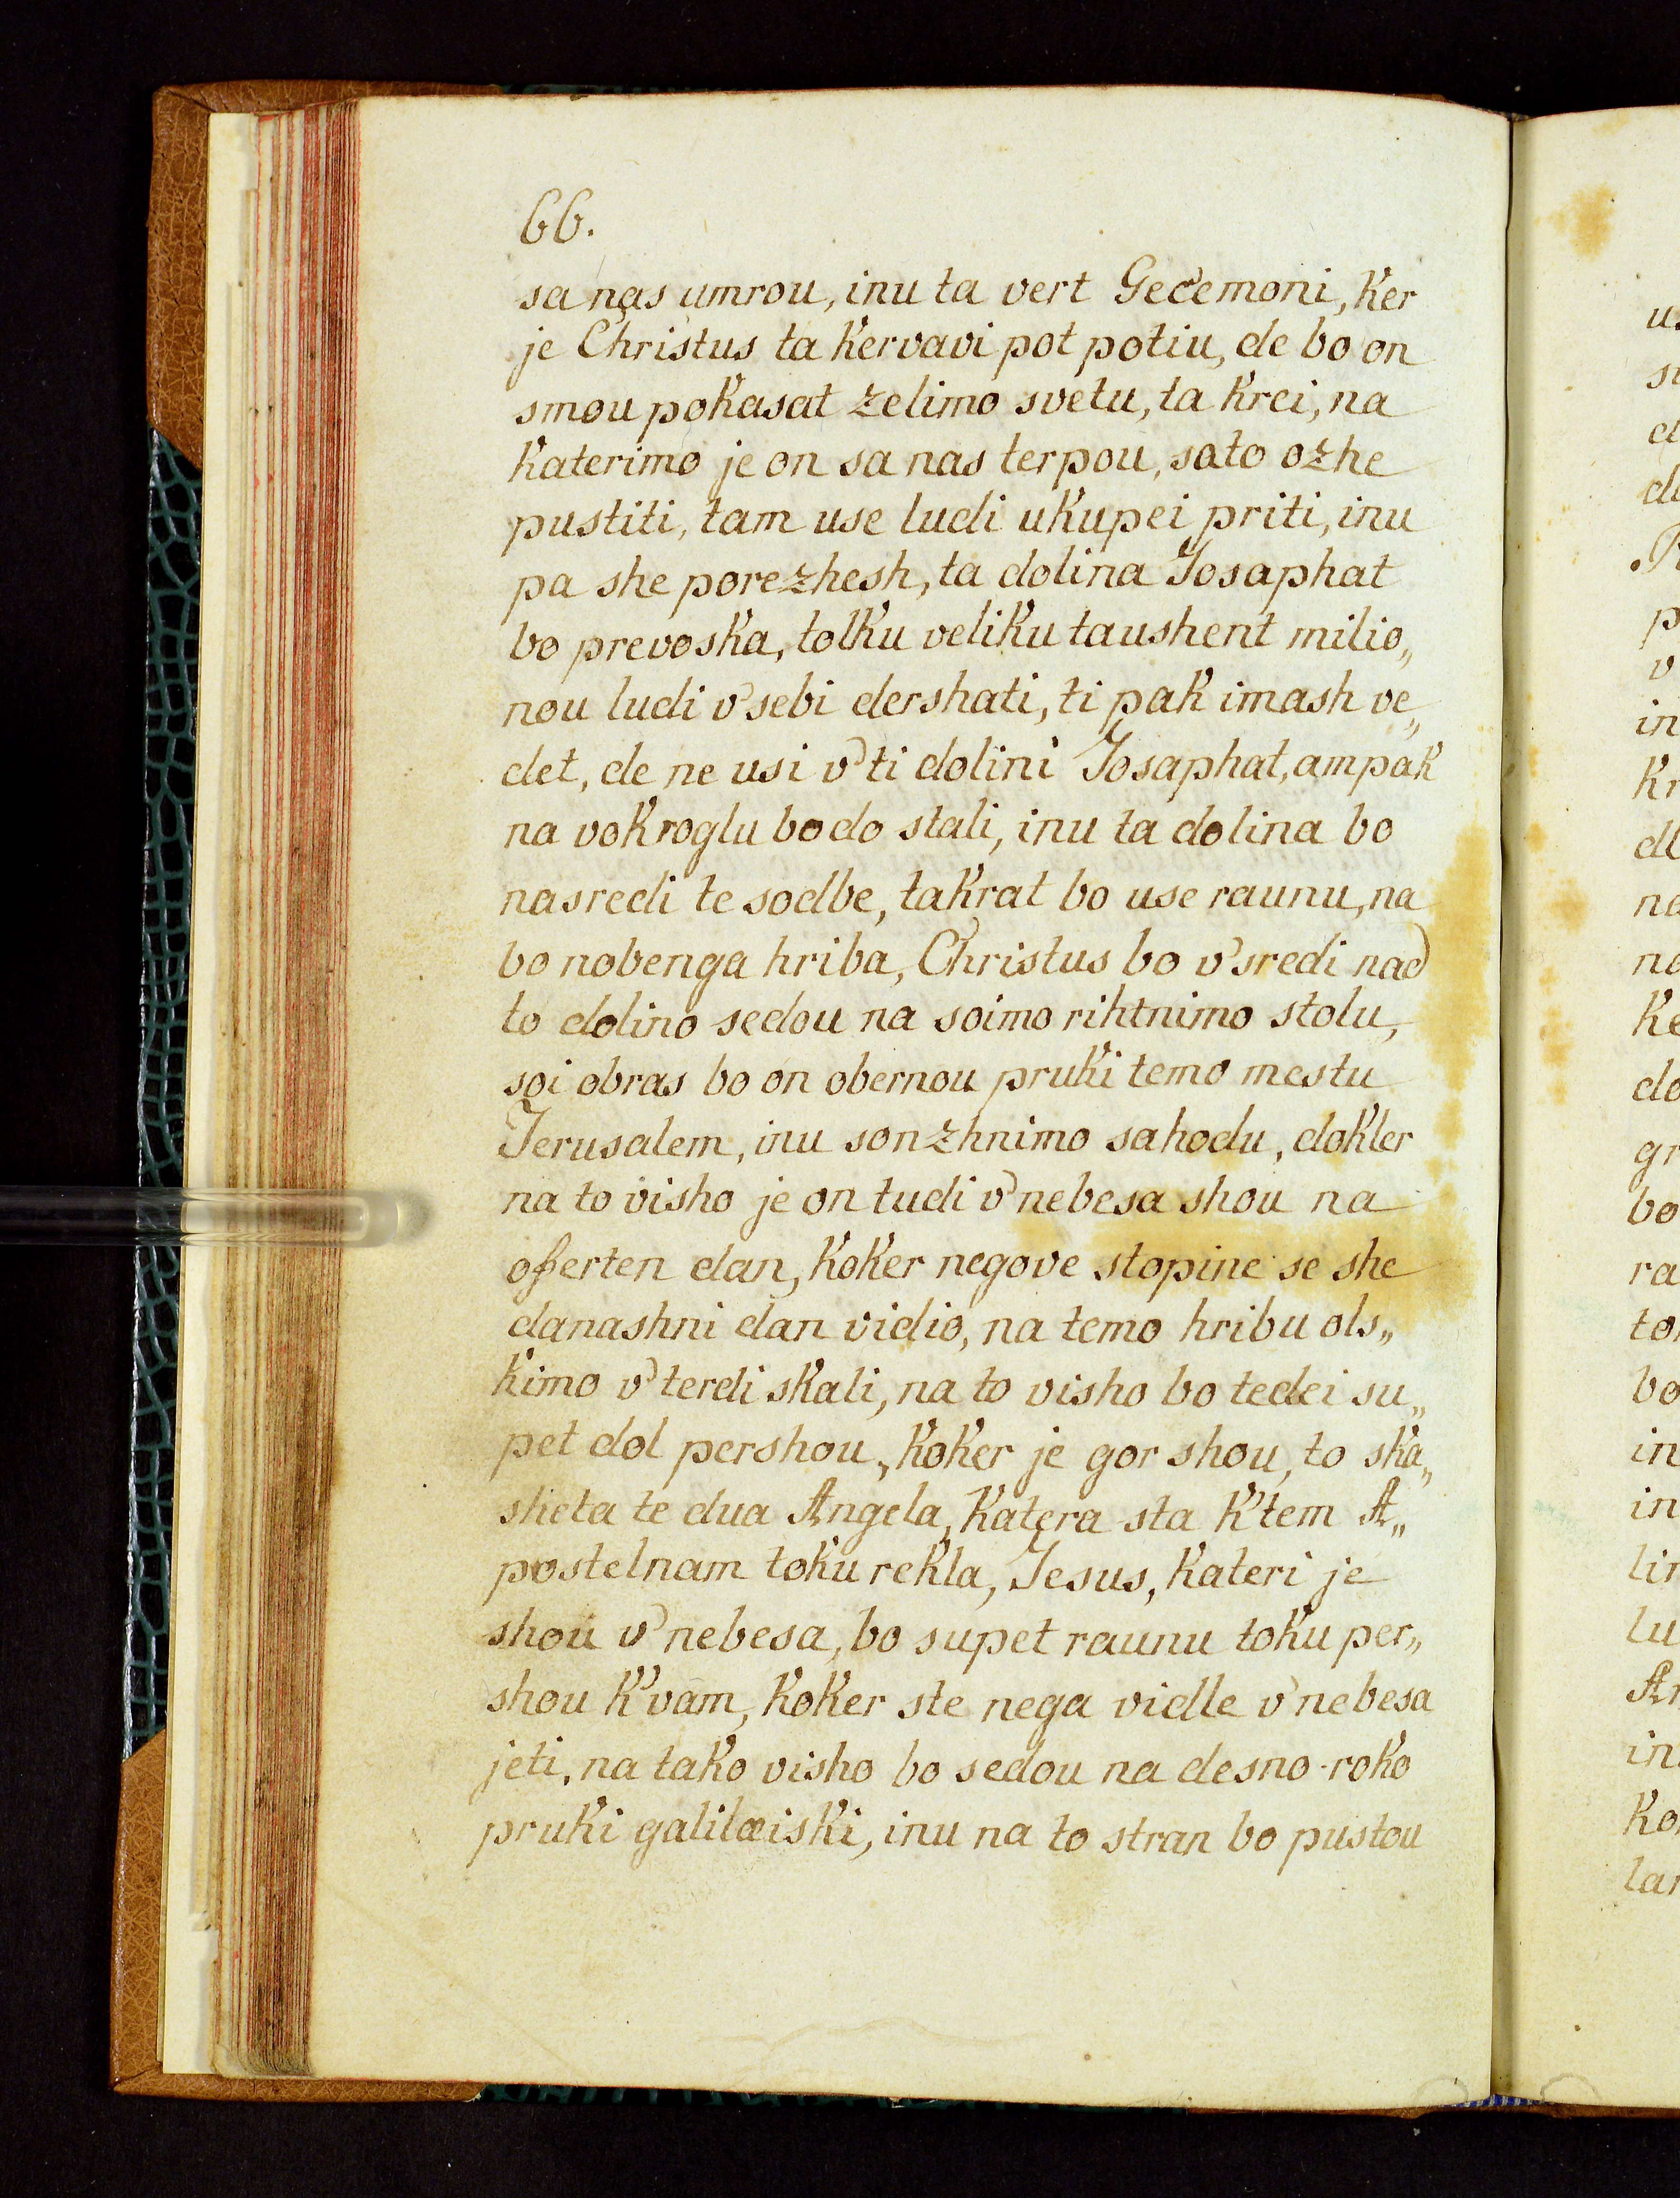 66.
sa nas umrou, inu ta vert Gecemoni, ker
je Christus ta kervavi pot potiu, de bo on
smou pokasat zelimo svetu, ta krei, na
katerimo je on sa nas terpou, sato ozhe
pustiti, tam use ludi ukupei priti, inu
pa she porezhesh, ta dolina Josaphat
bo prevoska, tolku veliku taushent milio„
nou ludi v'sebi dershati, ti pak imash ve„
det, de ne usi v'ti dolini Josaphat, ampak
na vokroglu bodo stali, inu ta dolina bo
nasredi te sodbe, takrat bo use raunu, na
bo nobenga hriba, Christus bo v'sredi nad
to dolino sedou na soimo rihtnimo stolu,
soi obras bo on obernou pruki temo mestu
Jerusalem, inu sonzhnimo sahodu, dokler
na to visho je on tudi v'nebesa shou na
oferten dan, koker negove stopine se she
danashni dan vidio, na temo hribu ols„
kimo v'terdi skali, na to visho bo tedei su„
pet dol pershou, koker je gor shou, to ska„
sheta te dua Angela, katera sta k'tem A„
postelnam toku rekla, Jesus, kateri je
shou v'nebesa, bo supet raunu toku per„
shou k'vam, koker ste nega vidle v'nebesa
jeti, na tako visho bo sedou na desno roko
pruki galilæiski, inu na to stran bo pustou